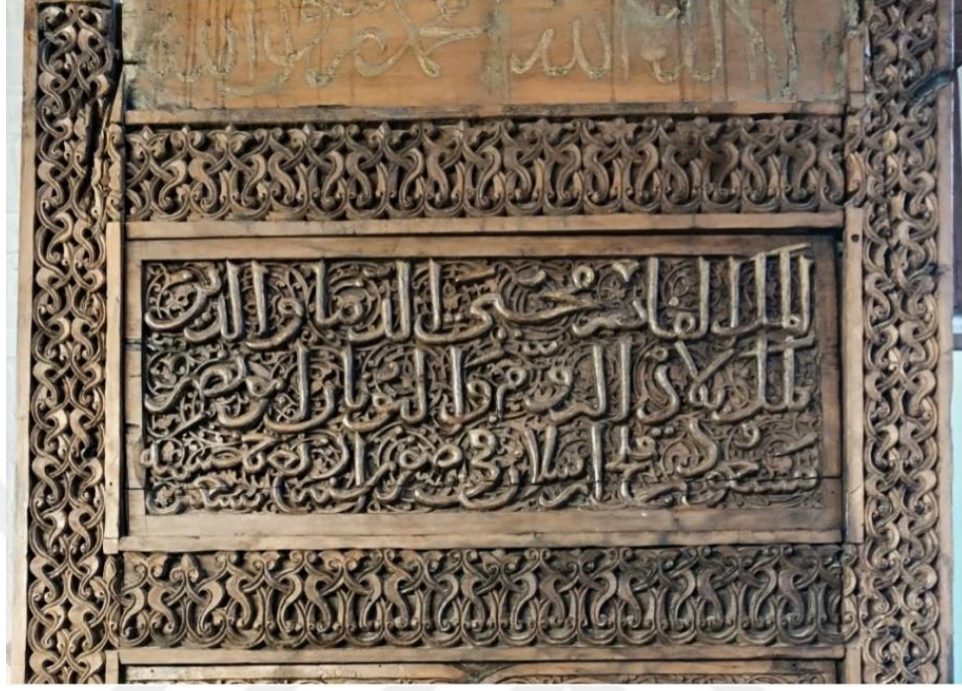 لا اله الا الله محمد رسول الله
الملك القاهر محيي الدنيا والدين
ملك بلاد الروم واليونان ابو نصر
مسعود بن قلج ارسلان في صفر